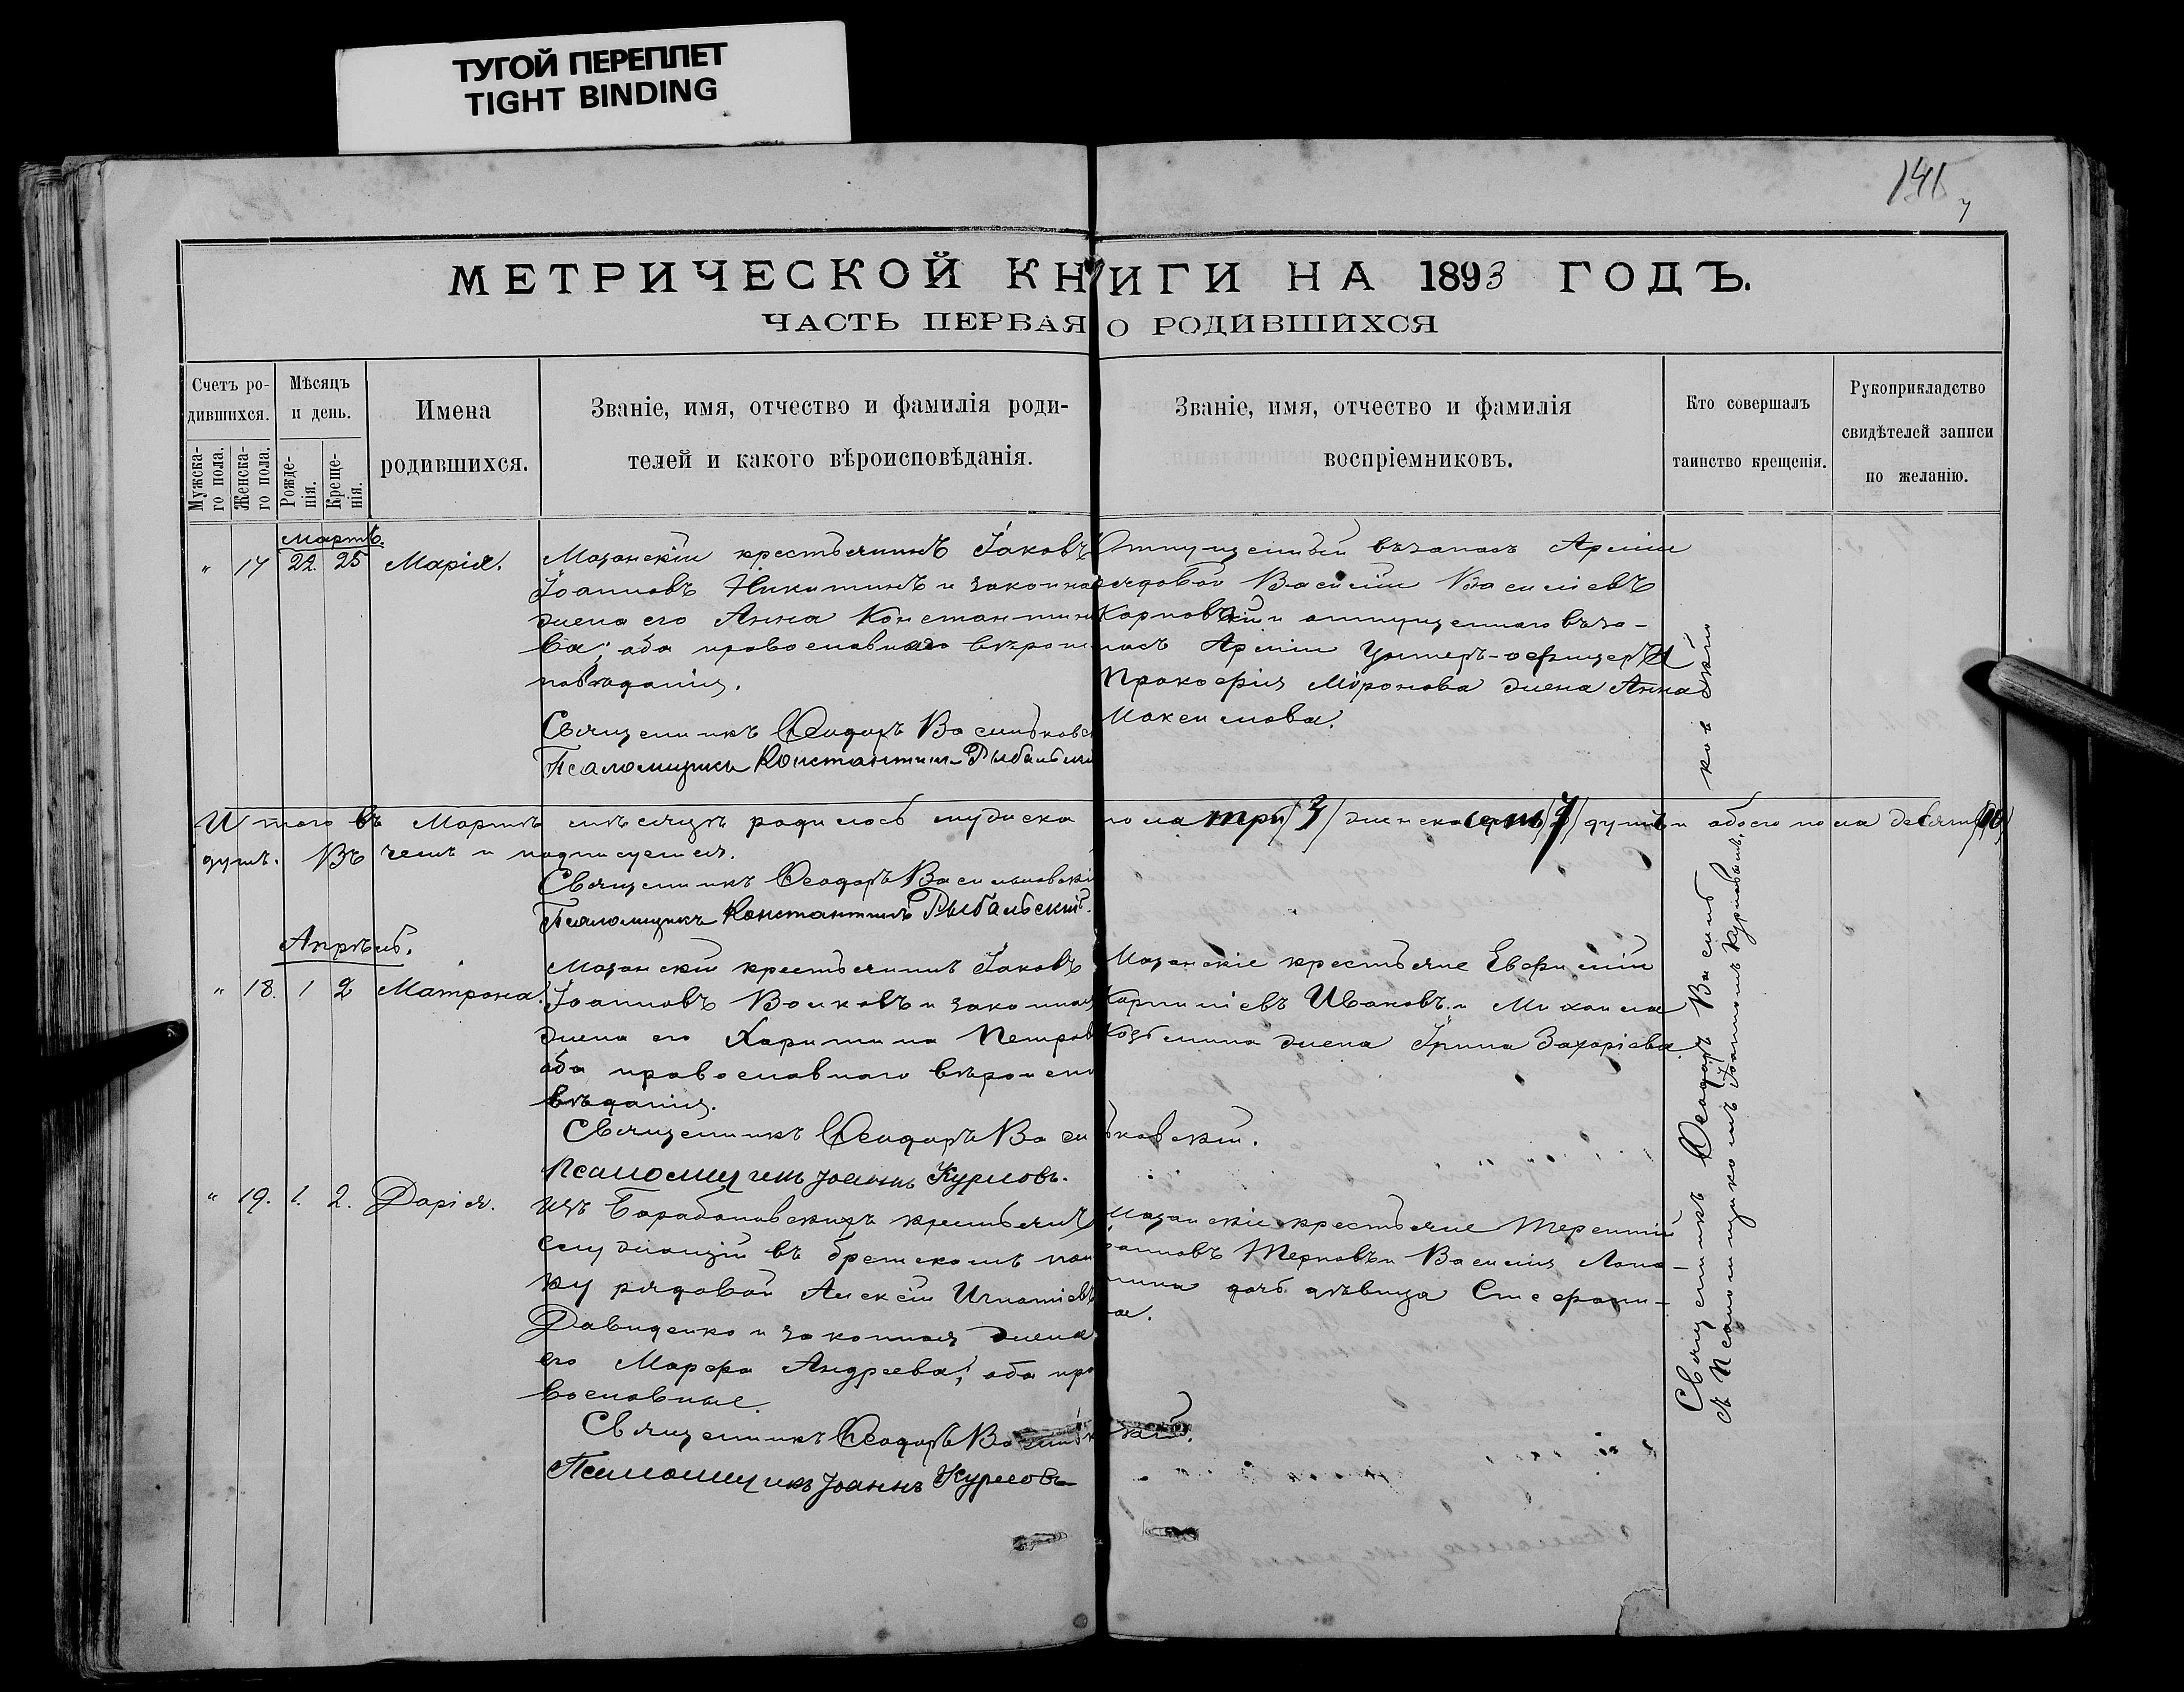 ТУГОЙ ПЕРЕПЛЕТ
TIGHT BINDING
141
МЕТРИЧЕСКОЙ КНИГИ НА 1893 ГОДЪ.
ЧАСТЬ ПЕРВАЯ О РОДИВШИХСЯ
Счетъ ро-
дившихся.
Мужска-
го пола.
Женска-
го пола.
Мѣсяцъ
и день.
Рожде-
нія.
Креще-
нія.
Имена
родившихся.
Званіе, имя, отчество и фамилія роди-
телей и какого вѣроисповѣданія.
Званіе, имя, отчество и фамилія
воспріемниковъ.
Кто совершалъ
таинство крещенія.
Рукоприкладство
свидѣтелей записи
по желанію.
Мартъ.
" 17 22. 25 Марія.
Мазанскій крестьянинъ Іаковъ
Іоанновъ Никитинъ и законная
жена его Анна Константино
ва; оба православнаго вѣроис
повѣданія.
Священникъ Ѳеодоръ Васильковск
Псаломщикъ Константинъ Рыбальскій
Отпущенный въ запасъ Арміи
рядовой Василій Василіевъ
Карповъ и отпущеннаго въ за-
пасъ Арміи Унтеръ-офицера
Прокофія Миронова жена Анна
Максимова.
Итого въ Мартѣ мѣсяцѣ родилось мужска пола три /3/ женска семь /7/ душъ и обоего пола десять /10/
душъ. Въ чемъ и подписуемся.
Священникъ Ѳеодоръ Васильковскій
Псаломщикъ Константинъ Рыбальскій.
Апрѣль.
" 18. 1 2 Матрона.
Мазанскій крестьянинъ Іаковъ
Іоанновъ Волковъ и законная
жена его Харитина Петров
оба православнаго вѣроиспо
вѣданія.
Священникъ Ѳеодоръ Васильковскій.
Псаломщикъ Іоаннъ Курловъ.
Мазанскіе крестьяне Евфимій
Карпиліевъ Ивановъ и Михаила
Козьмина жена Ірина Захаріева
" 19. 1. 2. Дарія.
Изъ Барабановскихъ крестьянъ
служащій въ брестскомъ пол
ку рядовой Алексій Игнатіевъ
Давиденко и законная жена
его Марфа Андреева; оба пра
вославные.
Священникъ Ѳеодоръ Васильковскій.
Псаломщикъ Іоаннъ Курловъ
Мазанскіе крестьяне Терентій
Іоанновъ Терновъ и Василія Лапо-
нина дочь дѣвица Стефани-
да.
Священникъ Ѳеодоръ Василь ковскій
съ Псаломщикомъ Іоанномъ Курловымъ.